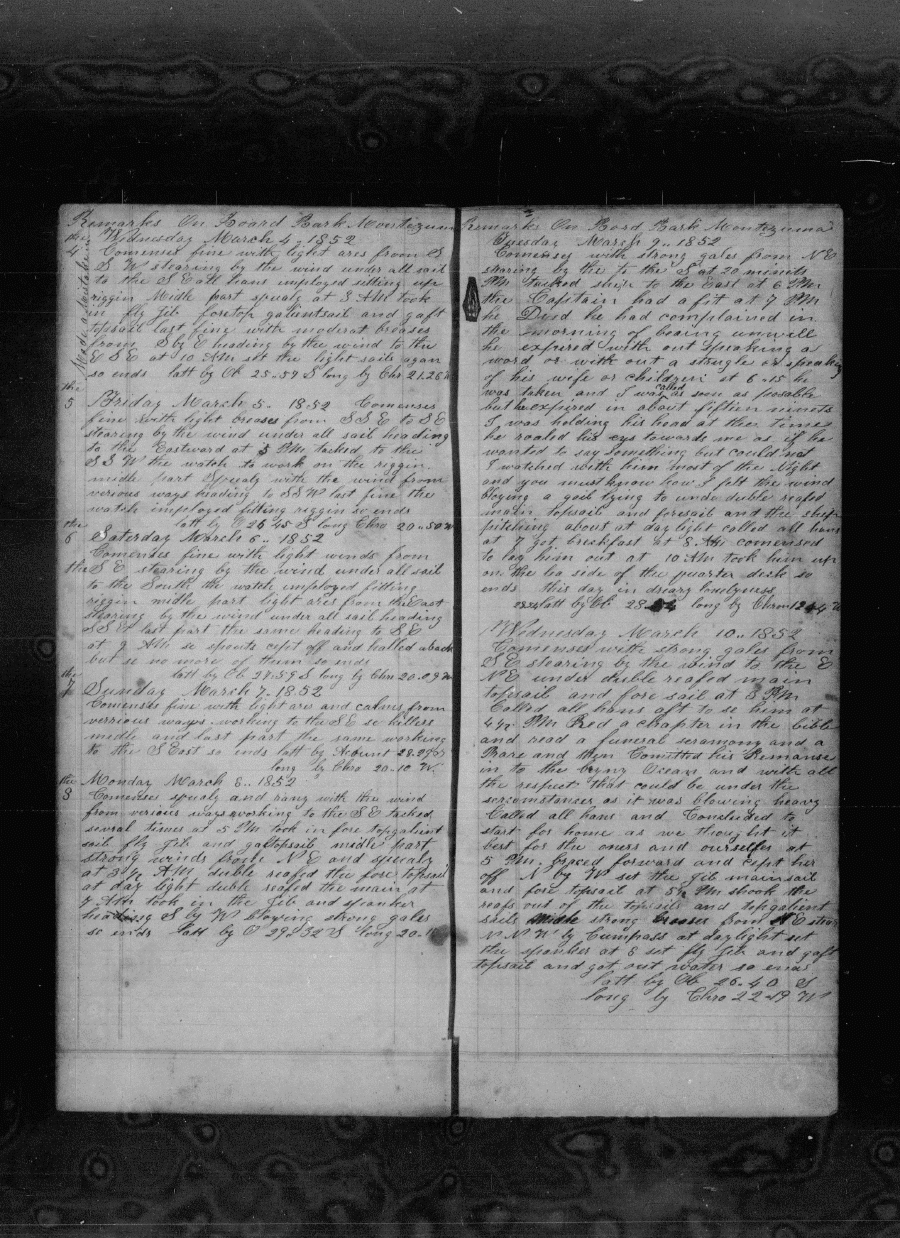 Remarks On Board Bark Montezuma
Wednesday March 4, 1852
the 4 Comenses fine with light ares from S
S W stearing by the wind under all sail
to the S E all hans imployed setting up
riggin Midle part squaly at 3 AM took
in fly Jib foretop galuntsail and gaft
topsail last fine with moderat breases
from S by E heading by the wind to the
E S E at 10 AM set the light sails agan
so ends latt by Ob 25-59 S long by Chr 21.26 W
Made a mistake in
the 5 Friday March 5. 1852 Comenses
fine with light breases from S S E to S E
stearing by the wind under all sail heading
to the Eastward at 5 PM tacked to the
S S W the watch to work on the riggin
midle part squaly with the wind from
verious ways heading to S S W last fine the
watch imployed fitting riggin so ends
latt by O 26 45 S long Chro 20-50 W
the 6 Saturday March 6.. 1852
Comenses fine with light winds from
the S E stearing by the wind under all sail
to the South the watch imployed fitting
riggin midle part light ares from the East
stearing by the wind under all sail heading
S S E last part the same heading to S E
at 9 AM se spoute cept off and halled aback
but se no more of them so ends
latt by O 27-59 S long by Chro 20-09 W
the 7 Sunday March 7. 1852
Comenses fine with light ares and calmes from
verrious ways working to the S E se killers
midle and last part the same working
to the S East so ends latt by Acount 28-29 S
long by Chro 20-10 W
the 8 Monday March 8.. 1852
Comense squaly and rany with the wind
from verious ways working to the S E tacked
several times at 5 PM took in fore topgalient
sail fly Jib and gaftopsail midle part
strong winds from N E and squaly
at 3 1/2 AM duble reafed the fore topsail
at day light duble reafed the main at
7 AM took in the Jib and spanker
heading S by W blowing strong gales
so ends latt by O 29-32 S long 20-1
Remarks On Bord Bark Montezuma
Tuesday March 9.. 1852
Comensey with strong gales from N E
staring by the to the S at 20 minits
PM tacked ship to the East at 6 PM
the Capitain had a fit at 7 PM
he Died he had complained in
the morning of beaing unwill
he expired with out speaking a
word or with out a strugle or speaking
of his wife or children at 6-15 he
was taken and I was called as soon as posable
but he expired in about fiftien minets
I was holding his head at the time
he roaled his eys towards me as if he
wanted to say something but could not
I watched with him most of the Night
and you must know how I felt the wind
bloying a gail lying to under duble reafed
main topsail and foresail and the ship
pitching about at day light called all hans
at 7 got breckfast at 8 AM comensed
to lay him out at 10 AM took him up
on the lea side of the quarter desk so
ends this day in dreary lonelyness
latt by Ob 28 long by Chrom 19 44 W
Wednesday March 10.. 1852
Comenses with strong gales from
S E stearing by the wind to the E
N E under duble reafed main
topsail and fore sail at 3 PM
Called all hans aft to se him at
4 1/2 PM Red a chapter in the bible
and read a funeral seramony and a
Prare and then Comitted his Remanse
in to the bryny Ocean and with all
the respect that could be under the
sercumstances as it was blowing heavy
Called all hans and Concluded to
start for home as we thought it
best for the oners and ourselfes at
5 PM braced forward and cept her
off N by W set the Jib mainsail
and fore topsail at 5 1/2 PM shook the
reafs out of the topsail and topgalient
sails Midle strong breases from N E stear
N N W by Cumpass at day light set
the spanker at 8 set fly Jib and gaft
topsail and got out water so ends
latt by Ob 26-40 S
long by Chro 22-19 W